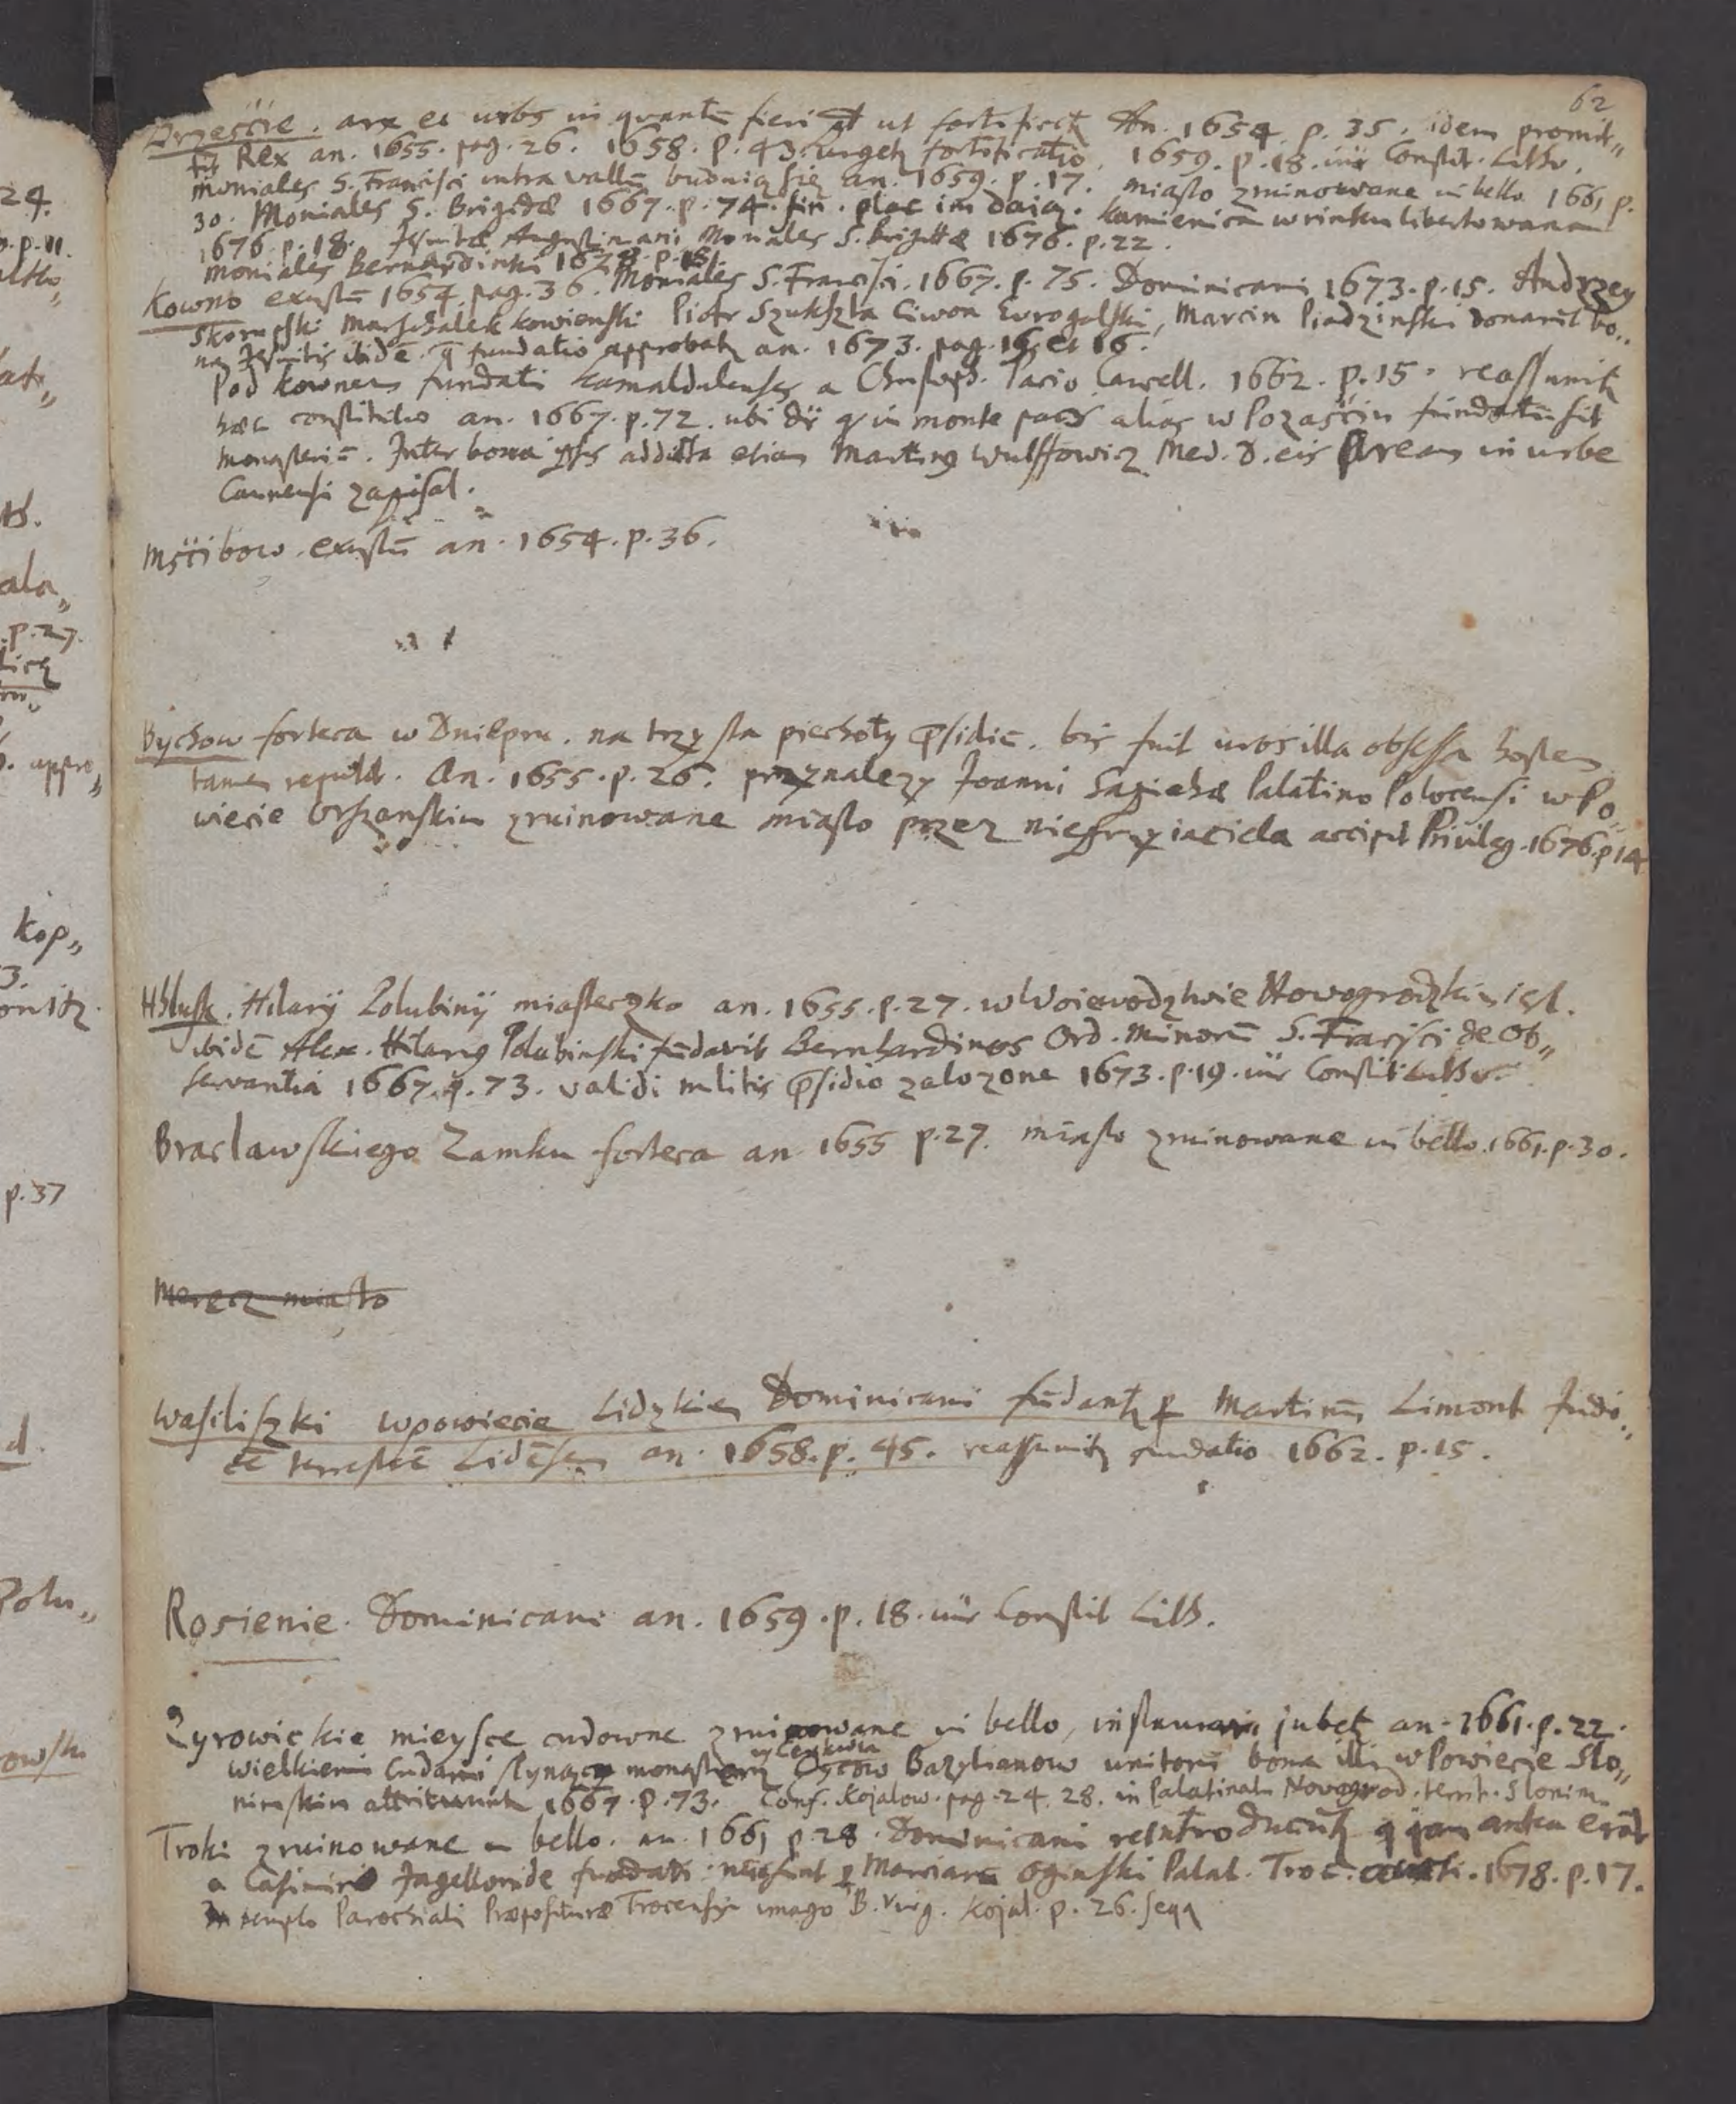 62
Brzeście. arx et urbs in quantũ fieri p̃t ut fortificetʒ An. 1654. p. 35. idem promit„
tit Rex an. 1655. pag. 26. 1658. p. 43. urgetʒ fortificatio. 1659. p. 18. inr Constit. Lithv.
moniales S. Francisci intra vallũ buduią się an. 1659. p. 17. miasto zruinowane in bello 1661 p.
30. Moniales S. Brigidæ 1667. p. 74. fin. plac im daią. kamienica w rinku libertowana
1676. p. 18. Jesuitæ Augustiniani Moniales S. Brigittæ 1676. p. 22.
moniales Bernardinki p. 18.
Kowno exustũ 1654. pag. 36. Moniales S. Francisci. 1667. p. 75. Dominicani 1673. p. 15. Andrzey
Skorupski Marszałek kowienski Piotr Szukszta Ciwon Eyragolski, Marcin Piadzinski donarũt bo„
na Jesuitis ibidẽ. q̃ fundatio approbatʒ an. 1673. pag. 15 et 16.
Pod kownem fundati Kamaldulenses a Christoph. Pacio Cancell. 1662. p. 15. reassumitʒ
hæc constitutio an. 1667. p. 72. ubi dr̃ q in monte pacis alias w Pozaściu fundatũ sit
monasteriũ. Inter bona addita etiam Martinꝯ Wulffowicz Med. D. eis Aream in urbe
Caunensi zapisal.
Mścibow. exustũ an. 1654. p. 36.
Bychow forteca w Dniepru. na trzy sta piechoty p̃sidiũ. bis fuit urbs illa obsessa hostem
tamen repulit. An. 1655. p. 26. przynalezy Joanni Sapiehæ Palatino Polocensi w Po„
wiecie Orszanskim zruinowane miasto przez nieprzyiaciela accipit Privileg. 1676. p 14
Hlusk. Hilarÿ Polubinÿ miasteczko an. 1655. p. 27. w Woiewodztwie Nowogrodzkim iest.
ibidẽ Alex. Hilariꝯ Polubinski fũdavit Bernhardinos Ord. Minorũ S. Frãcisci de Ob„
servantia 1667. p. 73. validi militis p̃sidio zalozone 1673. p. 19. inr Constit. Lithv.
Braclawskiego Zamku forteca an 1655 p. 27. miasto zruinowane in bello. 1661. p. 30.
Merecz miasto
Wasiliszki w powiecie Lidzkim Dominicani fũdantʒ p Martinũ Limont Judi„
cẽ terrestrẽ Lidẽsem an. 1658. p. 45. reassumitʒ fundatio 1662. p. 15.
Rosienie. Dominicani an. 1659. p. 18. inr Constit Lith.
Zyrowickie mieysce cudowne zruinowane in bello, instaurari jubetʒ an. 1661. p. 22.
y Cerkwia
wielkiemi Cudami slynący monastery Oycow Bazylianow unitorũ bona illi w Powiecie Slo„
nimskim attribuunt 1667. p. 73. Conf. Kojalow. pag. 24. 28. in Palatinatu Novogrod. territ. Slonim.
Troki zruinowane in bello. an. 1661 p. 28. Dominicani reintroducuntʒ q jam antea erãt
a Casimiro Jagellonide fundati p Marcianũ Oginski Palat. Troc. 1678. p. 17.
In templo Parochiali Præposituræ Trocensis imago B. Virg. Kojal. p. 26. seqq